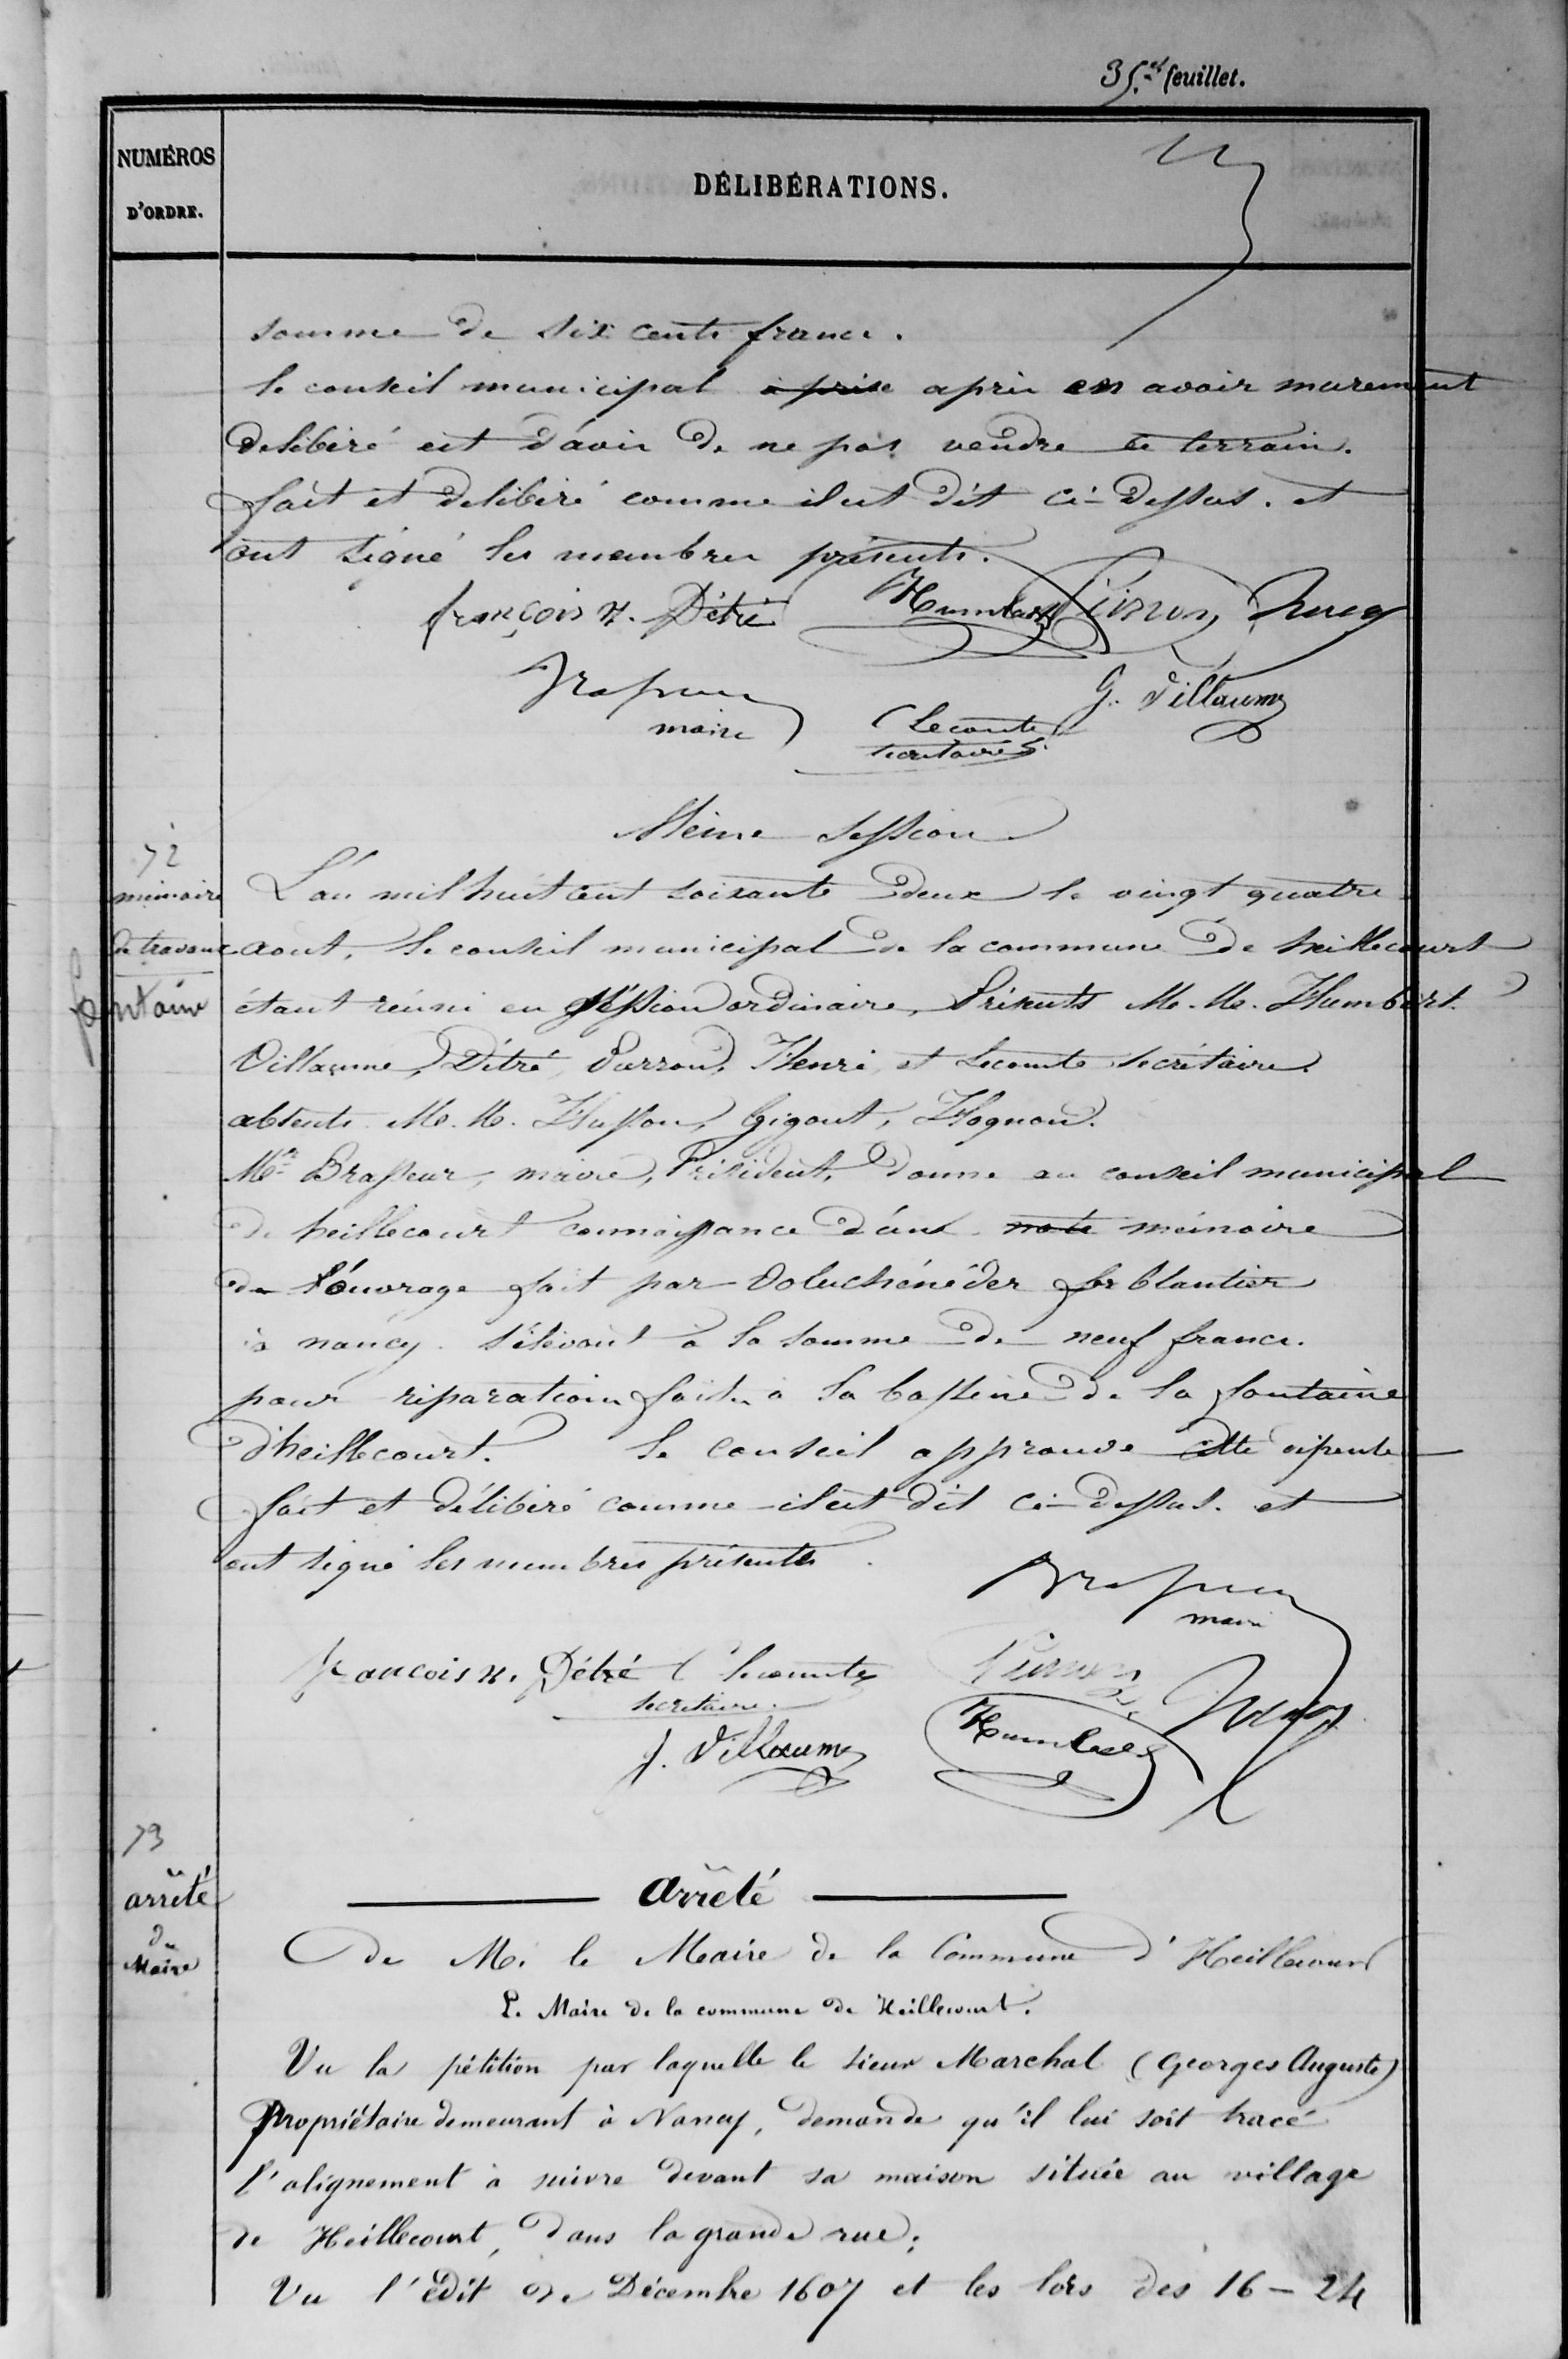 35.et feuillet.
NUMÉROS
D'ORDRE.
DÉLIBÉRATIONS.
somme de six cents francs.
le conseil municipal a prise après en avoir murement
delibéré est d'avis de ne pas vendre ce terrain.
fait et delibéré comme il est dit ci-dessus. et
ont signé les membres présents.
françois n. Détré Humbert Pierron Henry
Brasseur
maire
Lecomte
secretaire
G. Villaume
Même session
72
mémoire
de travaux
fontaine
L'an mil huit cent soixante deux le vingt quatre
aout, le conseil municipal de la commune de heillecourt
étant réuni en session ordinaire, Présents M. M. Humbert.
Villaume, Détré, Pierron, Henri, et Lecomte secrétaire.
absents M. M. Husson, Gigout, Hognon.
Mr Brasseur, maire, Président, donne au conseil municipal
de heillecourt connaissance d'un note mémoire
de l'ouvrage fait par ferblantier
à nancy. s'élevant à la somme de neuf francs.
pour réparation faite à la bassine de la fontaine
d'heillecourt. Le conseil approuve cette dépense
fait et délibéré comme il est dit ci-dessus. et
ont signé les membres présents.
Brasseur
maire
francois n. Détré Lecomte
secretaire.
Pierron Henry
J. Villaume
Humbert
73
arrêté
du
Maire
Arrêté
De M. le Maire de la Commune d'Heillecourt
Le Maire de la commune de Heillecourt.
Vu la pétition par laquelle le sieur Marchal (Georges Auguste)
Propriétaire demeurant à Nancy, demande qu'il lui soit tracé
l'alignement à suivre devant sa maison située au village
de Heillecourt, dans la grande rue;
Vu l'édit de Décembre 1607 et les lois des 16 - 24